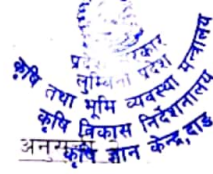 लुम्बिनी प्रदेश
कृषि तथा भूमि व्यवस्था मन्त्रालय
कृषि विकास निर्देशनालय
कृषि ज्ञान केन्द्र, दाङ